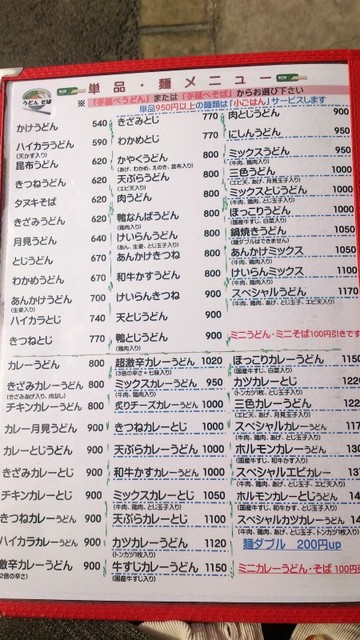 うどん そば
単品・麺メニュー
※「手延べうどん」または「手延べそば」からお選び下さい
単品950円以上の麺類は「小ごはん」サービスします
かけうどん 540
ハイカラうどん 590
(天かす入り)
昆布うどん 620
きつねうどん 620
タヌキそば 620
きざみうどん 620
月見うどん 640
とじうどん 670
わかめうどん 670
あんかけうどん 700
(生姜入り)
ハイカラとじ 740
きつねとじ 770
きざみとじ 770
わかめとじ 770
かやくうどん 800
(あげ、わかめ、えのき、昆布入り)
天ぷらうどん 800
(エビ天入り)
肉うどん 800
鴨なんばうどん 800
(鶏肉入り)
けいらんうどん 800
(あん、生姜、とじ玉子入り)
あんかけきつね 800
和牛かすうどん 800
けいらんきつね 900
天とじうどん 900
鴨とじうどん 900
(鶏肉入り)
肉とじうどん 900
にしんうどん 950
ミックスうどん 950
(牛肉、鶏肉入り)
三色うどん 1000
(エビ天、あげ、月見玉子入り)
ミックスとじうどん 1000
(牛肉、鶏肉入り)
ほっこりうどん 1000
(国産牛すじ、白菜入り)
鍋焼きうどん 1050
(麺ダブルはできません)
あんかけミックス 1050
(牛肉、鶏肉入り)
けいらんミックス 1100
(牛肉、鶏肉入り)
スペシャルうどん 1170
(牛肉、鶏肉、あげ、とじ玉子、エビ天入り)
ミニうどん・ミニそば100円引きです
カレーうどん 800
きざみカレーうどん 800
(きざみあげ入り、肉なし)
チキンカレーうどん 800
カレー月見うどん 900
カレーとじうどん 900
きざみカレーとじ 900
チキンカレーとじ 900
きつねカレーうどん 900
ハイカラカレーうどん 900
激辛カレーうどん 900
(2倍の辛さ)
超激辛カレーうどん 1020
(3倍の辛さ+七味入り)
ミックスカレーうどん 950
(牛肉、鶏肉入り)
炙りチーズカレーうどん 1000
きつねカレーとじ 1000
天ぷらカレーうどん 1000
和牛かすカレーうどん 1000
ミックスカレーとじ 1050
(牛肉、鶏肉、とじ玉子入り)
天ぷらカレーとじ 1100
カツカレーうどん 1120
(トンカツ1枚入り)
牛すじカレーうどん 1150
(国産牛すじ入り)
ほっこりカレーうどん 1150
(国産牛すじ、白菜入り)
カツカレーとじ 122
(トンカツ1枚、とじ玉子入り)
三色カレーうどん 122
(エビ天、あげ、月見玉子入り)
スペシャルカレーうどん 117
(牛肉、鶏肉、あげ、とじ玉子入り)
ホルモンカレーうどん 130
(国産牛すじ、和牛かす入り)
スペシャルエビカレー 137
(牛肉、鶏肉、あげ、とじ玉子、エビ天入り)
ホルモンカレーとじうどん 14
(国産牛すじ、和牛かす、とじ玉子入り)
スペシャルカツカレーうどん 14
(牛肉、鶏肉、あげ、とじ玉子、トンカツ1枚入り)
麺ダブル 200円up
ミニカレーうどん・そば 100円引